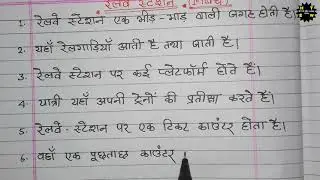 रेलवे स्टेशन (निबंध)
1. रेलवे स्टेशन एक भीड़-भाड़ वाली जगह होती है।
2. यहाँ रेलगाड़ियाँ आती है तथा जाती हैं।
3. रेलवे स्टेशन पर कई प्लेटफॉर्म होते हैं।
4. यात्री यहाँ अपनी ट्रेनों की प्रतीक्षा करते हैं।
5. रेलवे स्टेशन पर एक टिकट काउंटर होता है।
6. वहाँ एक पूछताछ काउंटर